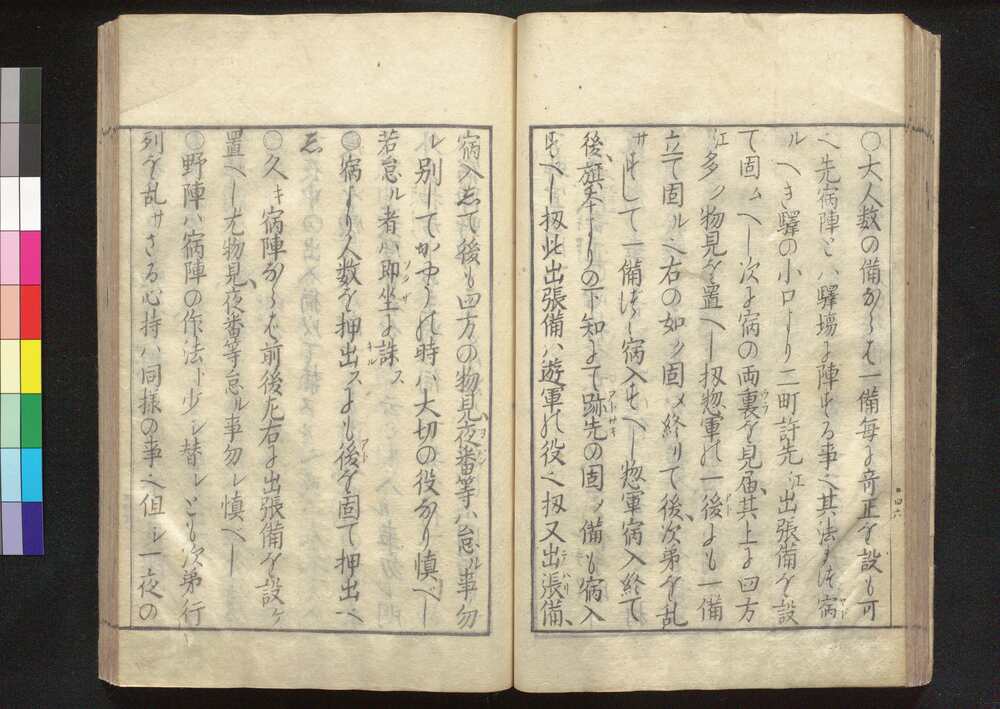 ○大人数の備ならば一備毎に奇正を設も可
也先宿陣とハ驛場に陣する事也其法まづ宿
ルへき驛の小口より二町許先江出張備を設
て固ムへし次に宿の両裏を見届其上に四方
江多ク物見を置へし扨惣軍の一後にも一備
立て固ル也右の如ク固メ終りて後次第を乱
サずして一備づゝ宿入すへし惣軍宿入終て
後旗本よりの下知にて跡先の固ノ備も宿入
すへし扨此出張備ハ遊軍の役也扨又出張備
宿入して後も四方の物見夜番等ハ怠ル事勿
レ別してかやうの時ハ大切の役なり慎へし
若怠ル者ハ即坐に誅ス
○宿より人数を押出スにも後を固て押出へ
し
○久キ宿陣ならば前後左右に出張備を設ケ
置へし尤物見夜番等怠ル事勿レ慎へし
○野陣ハ宿陣の作法ト少シ替レとも次第行
列を乱サざる心持ハ同様の事也但シ一夜の